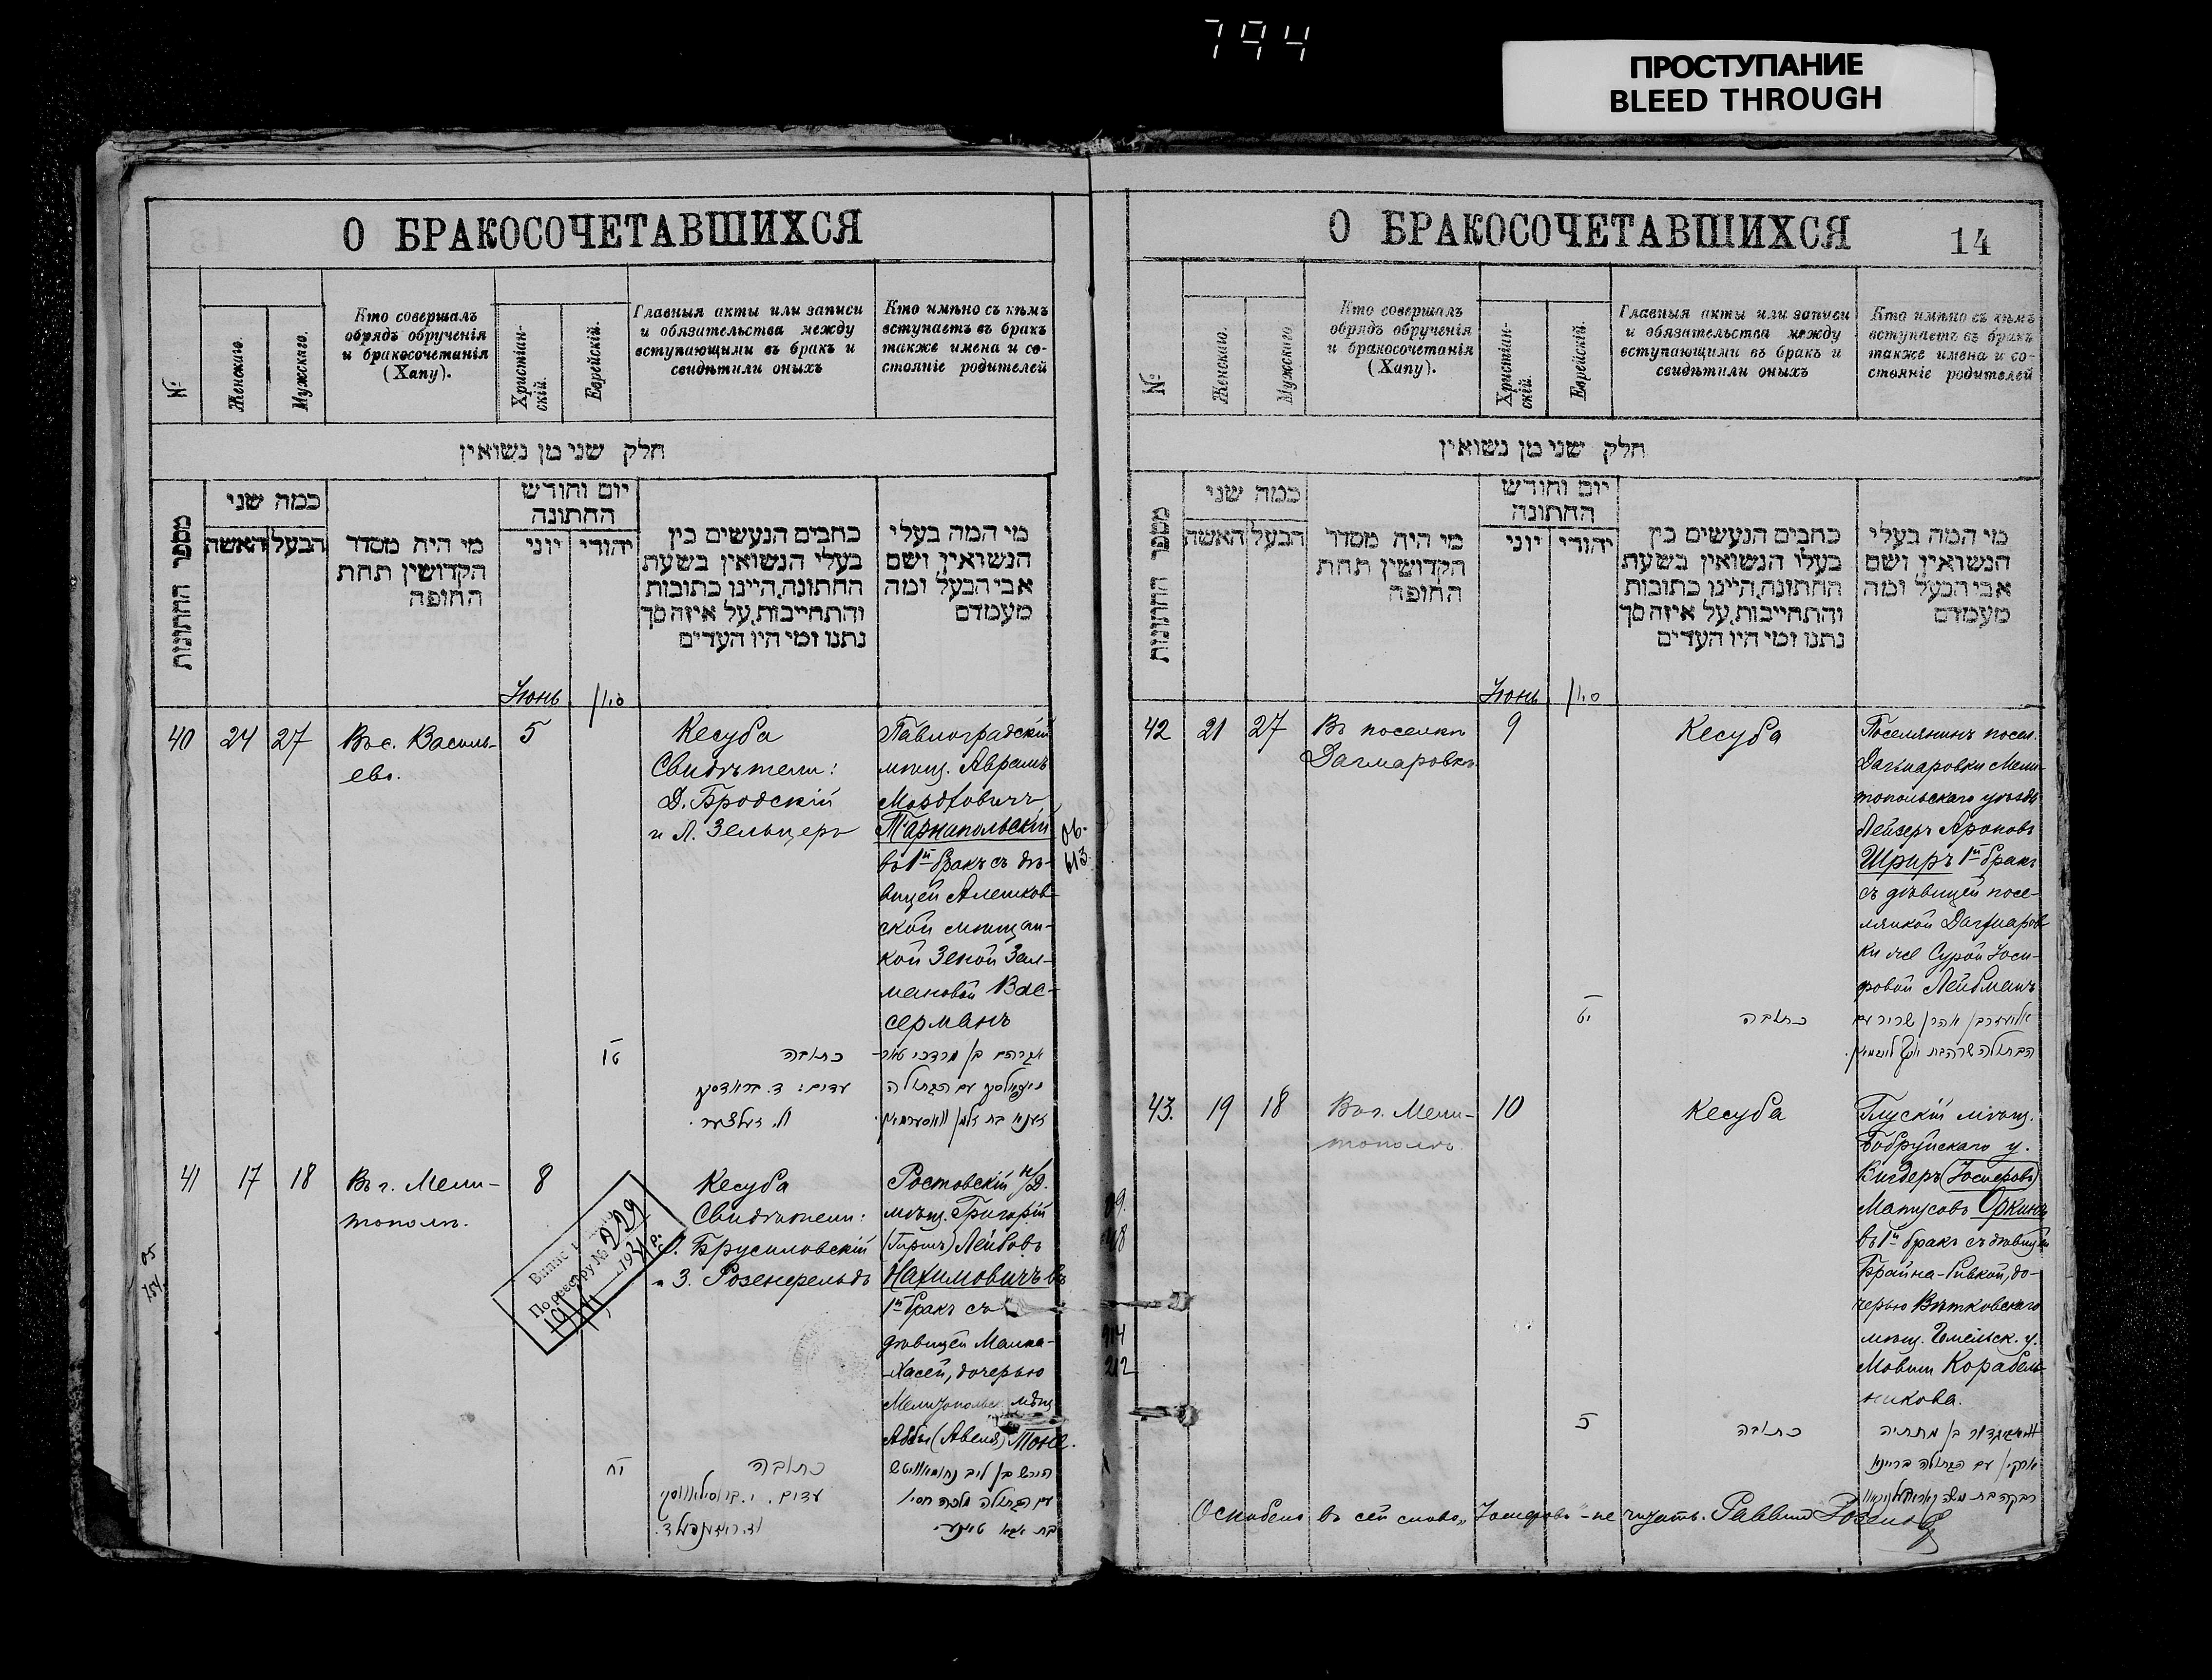 794
ПРОСТУПАНИЕ
BLEED THROUGH
О БРАКОСОЧЕТАВШИХСЯ
№
Женскаго.
Мужскаго.
Кто совершалъ
обрядъ обрученія
и бракосочетанія
(Хапу).
Христіан-
скій.
Еврейскій.
Главныя акты или записи
и обязательства между
вступающими въ бракъ и
свидѣтили оныхъ
Кто имѣно съ кѣмъ
вступаетъ въ бракъ
также имена и со-
стояніе родителей
חלק שני מן נשואין
מספר החתונות
כמה שני
האשה
הבעל
מי היה מסדר
הקדושין תחת
החופה
יום וחודש
החתונה
יוני
יהודי
כתבים הנעשים בין
בעלי הנשואין בשעת
החתונה, היינו כתובות
והתחייבות, על איזה סך
נתנו ומי היו העדים
מי המה בעלי
הנשואין ושם
אבי הבעל ומה
מעמדם
Іюнь
40
24
27
Въ с. Василь-
ево.
5
Кесуба
Свидѣтели:
Д. Бродскій
и Л. Зельцеръ
Павлоградскій
мѣщ. Аврамъ
Мордковичъ
Тарнапольскій
въ 1й бракъ съ дѣ-
вицей Алешков-
ской мѣщан-
кой Зеной Зел-
мановой Вас-
серманъ
613.
טו
כתובה
עדים: ד. בראדסקי
ל. זעלצער.
אברהם בן מרדכי טאר-
נאפאלסקי עם הבתולה
זענא בת זלמן וואסערמאן.
41
17
18
Въ г. Мели-
тополѣ.
8
Кесуба
Свидѣтели:
Брусиловскій
и З. Розенфельдъ
Ростовскій н/Д.
мѣщ. Григорій
(Гиршъ) Лейбовъ
Нахимовичъ въ
1й бракъ съ
дѣвицей Малка-
Хасей, дочерью
Мелитопольск. мѣщ.
Аббы (Авеля)
По реестру № 229
1931 р.
יח
כתובה
הירש בן ליב נחימאוויטש
עם הבתולה מלכה חסיא
О БРАКОСОЧЕТАВШИХСЯ
14
№
Женскаго.
Мужскаго
Кто совершалъ
обрядъ обрученія
и бракосочетанія
(Хапу).
Христіан-
скій.
Еврейскій.
Главныя акты или записи
и обязательства между
вступающими въ бракъ и
свидѣтили оныхъ
Кто имѣно съ кѣмъ
вступаетъ въ бракъ
также имена и со-
стояніе родителей
חלק שני מן נשואין
מספר החתונות
כמה שני
האשה
הבעל
מי היה מסדר
הקדושין תחת
החופה
יום וחודש
החתונה
יוני
יהודי
כתבים הנעשים בין
בעלי הנשואין בשעת
החתונה, היינו כתובות
והתחייבות, על איזה סך
נתנו ומי היו העדים
מי המה בעלי
הנשואין ושם
אבי הבעל ומה
מעמדם
Іюнь
42
21
27
Въ поселкѣ
Дагмаровкѣ
9
Кесуба
Поселянинъ посел.
Дагмаровки Мели-
топольскаго уѣзда
Лейзеръ Ароновъ
Шриръ 1й бракъ
съ дѣвицей посе-
лянкой Дагмаров-
ки же Сурой Іоси-
фовой Лейбманъ
יט
כתובה
43.
19
18
Въ г. Мели-
тополѣ.
10
Кесуба
Глускій мѣщ.
Бобруйскаго у.
Вигдеръ (Іосифовъ)
Матусовъ Оркинъ
въ 1й бракъ съ дѣвицей
Брайна-Ривкой, до-
черью Вѣтковскаго
мѣщ. Гомельск. у.
Мовши Корабель-
никова.
כתובה
Оскоблено въ сей слово „Іосифовъ" – не читать. Раввинъ